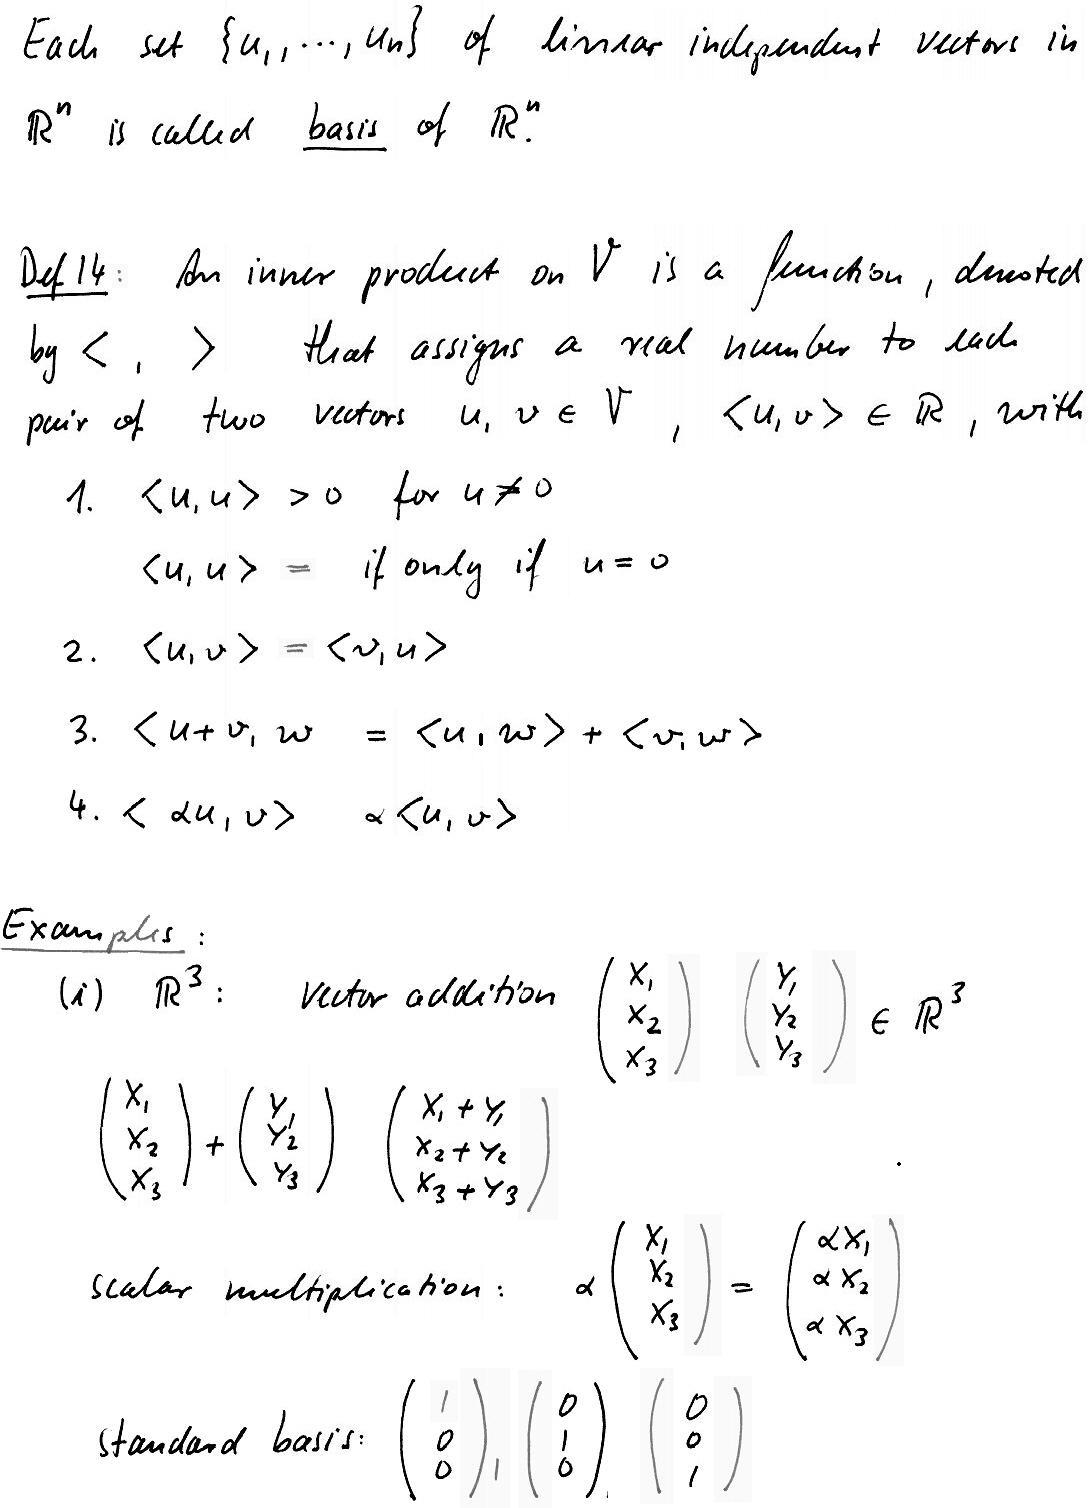 Each set {u₁, ..., uₙ} of linear independent vectors in
ℝⁿ is called basis of ℝⁿ.
Def 14: An inner product on V is a function, denoted
by < , > that assigns a real number to each
pair of two vectors u, v ∈ V, <u,v> ∈ ℝ, with
1. <u,u> > 0 for u ≠ 0
<u,u> = if only if u = 0
2. <u,v> = <v,u>
3. <u+v, w = <u,w> + <v,w>
4. < αu, v> α <u,v>
Examples:
(i) ℝ³: vector addition (x₁ x₂ x₃) (y₁ y₂ y₃) ∈ ℝ³
(x₁ x₂ x₃) + (y₁ y₂ y₃) (x₁+y₁ x₂+y₂ x₃+y₃)
scalar multiplication: α (x₁ x₂ x₃) = (αx₁ αx₂ αx₃)
standard basis: (1 0 0), (0 1 0), (0 0 1)